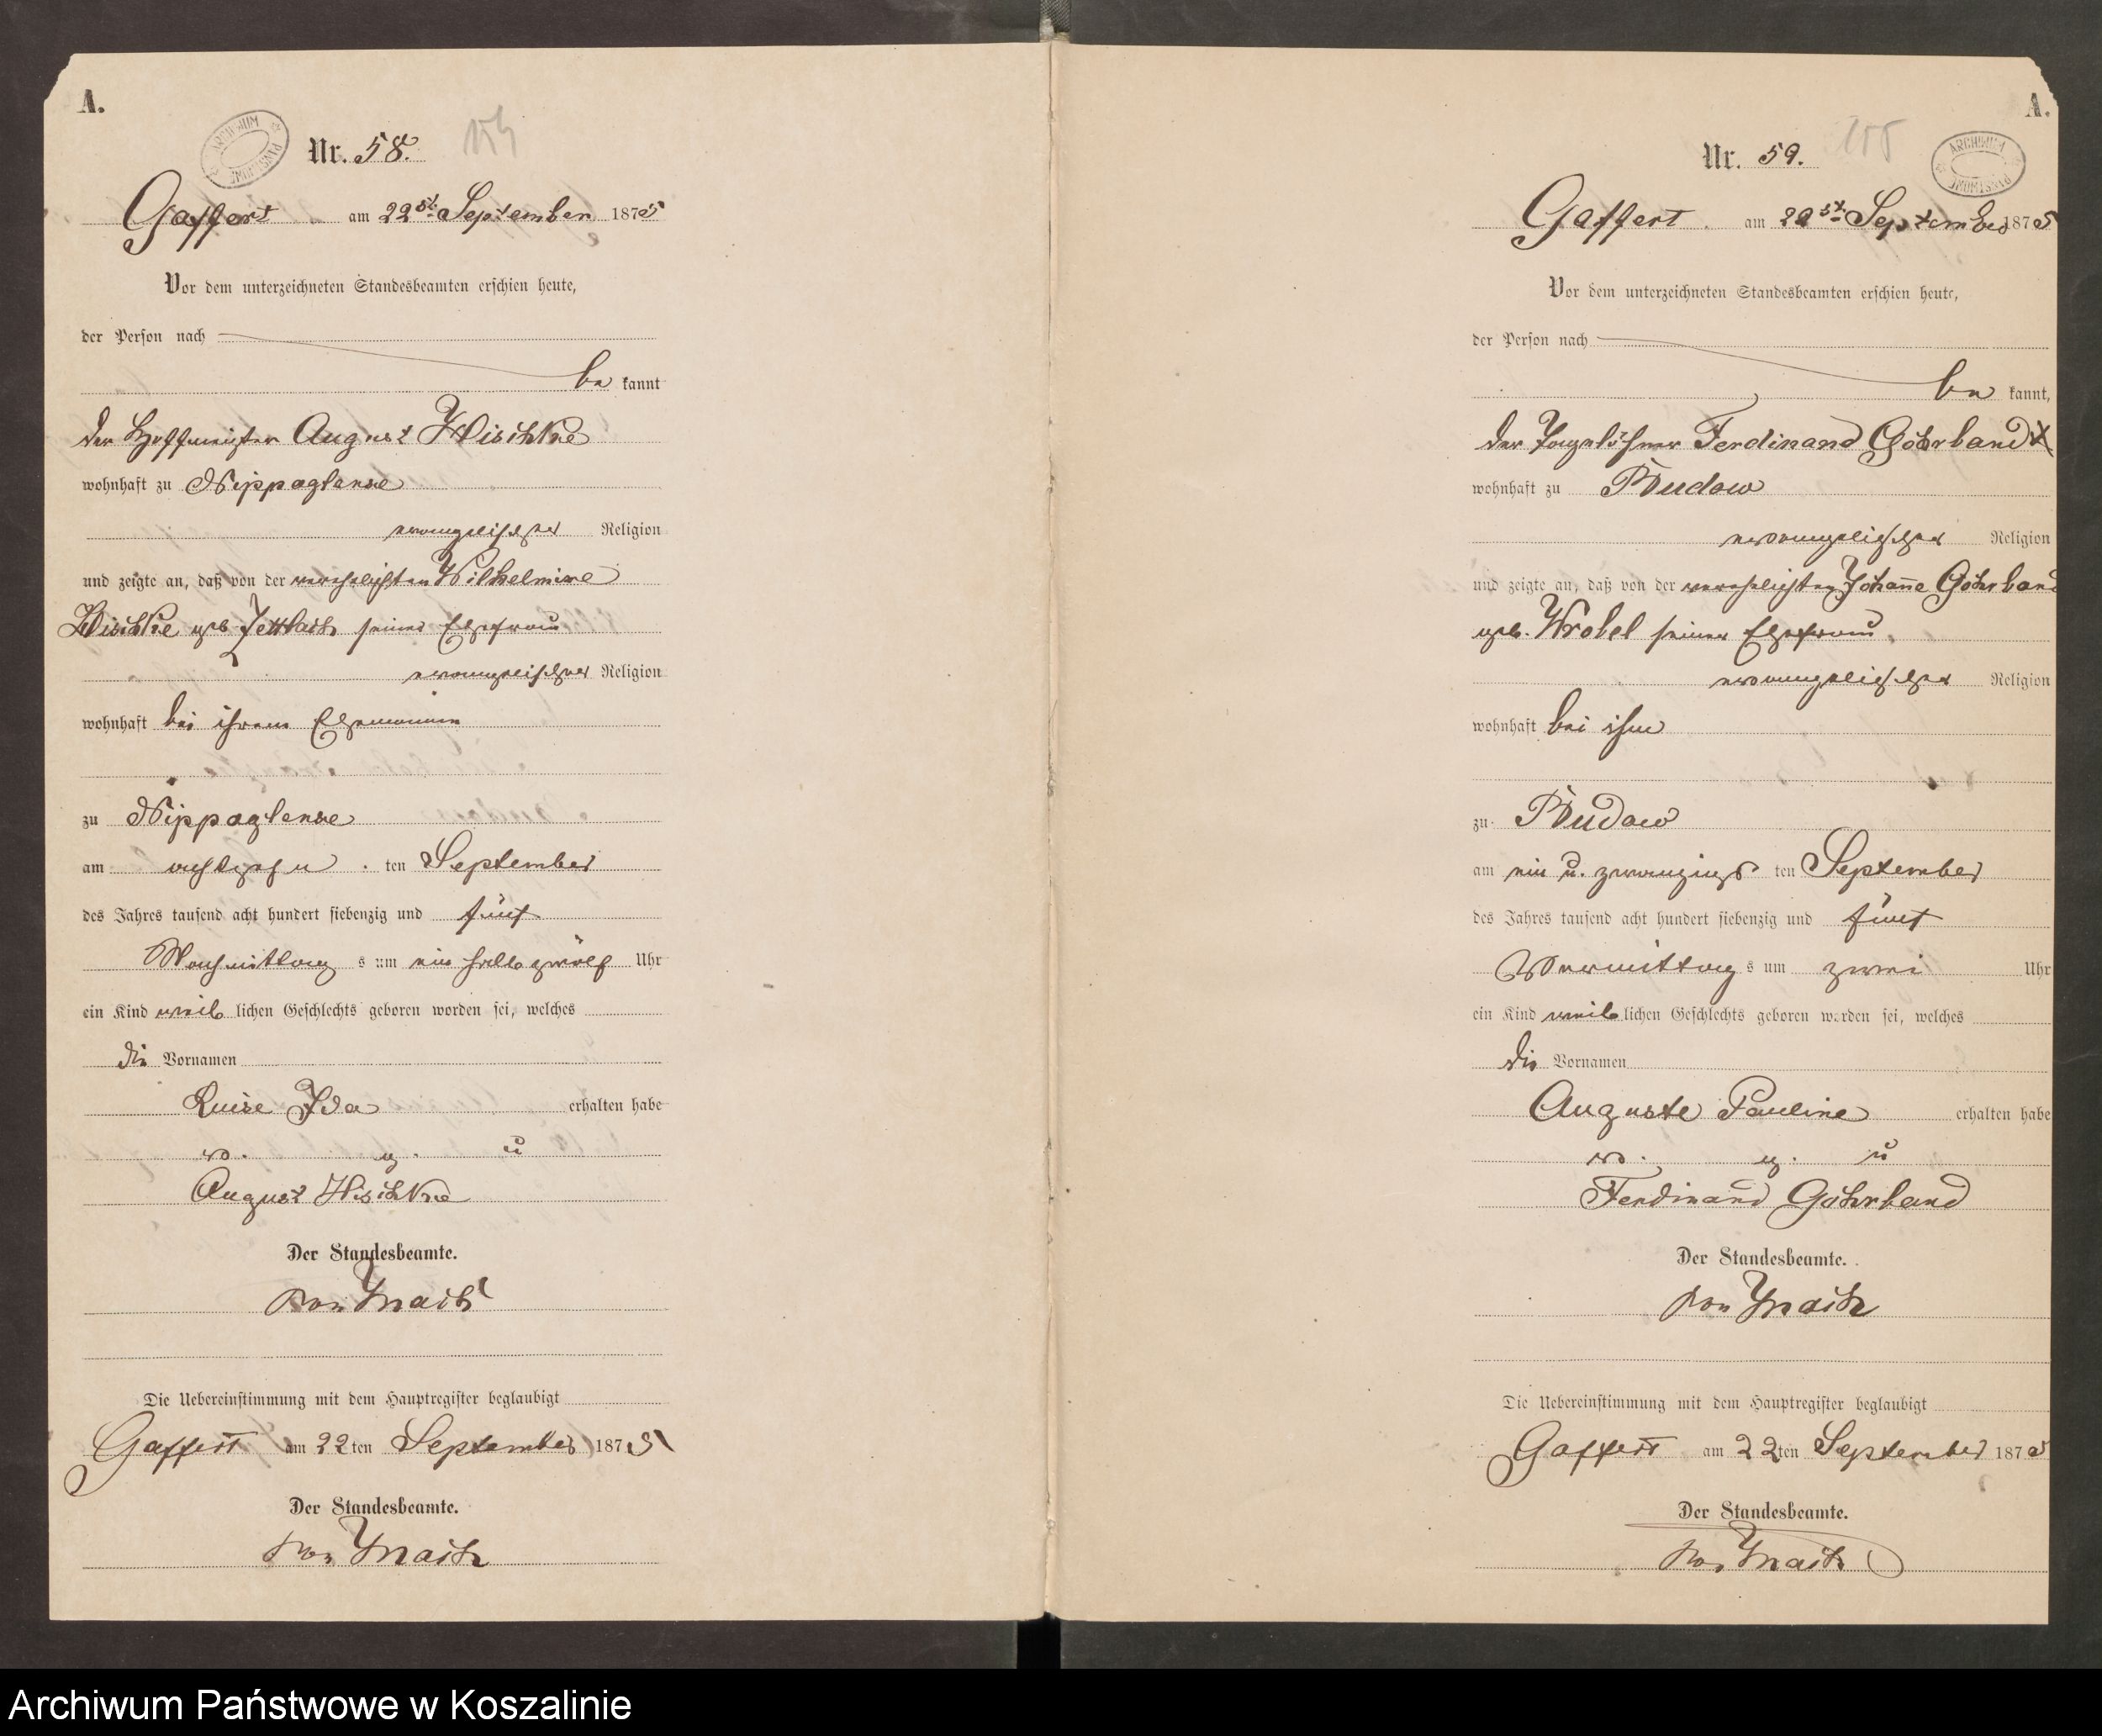 A.
ARCHIWUM PAŃSTWOWE
Nr. 58.
154
Gaffert am 22st September 1875
Vor dem unterzeichneten Standesbeamten erschien heute,
der Person nach
be kannt
der Hoffmeister August Wischke
wohnhaft zu Nippoglense
evangelischer Religion
und zeigte an, daß von der verehelichten Wilhelmine
Wischke geb. seiner Ehefrau
evangelischer Religion
wohnhaft bei ihrem Ehemanne
zu Nippoglense
am achtzehn ten September
des Jahres tausend acht hundert siebenzig und fünf
Nachmittag s um ein halb zwölf Uhr
ein Kind weib lichen Geschlechts geboren worden sei, welches
die Vornamen
Luise Ida erhalten habe
v. g. u
August Wischke
Der Standesbeamte.
von
Die Uebereinstimmung mit dem Hauptregister beglaubigt
Gaffert am 22ten September 1875
Der Standesbeamte.
von
A.
ARCHIWUM PAŃSTWOWE
Nr. 59.
155
Gaffert am 22st September 1875
Vor dem unterzeichneten Standesbeamten erschien heute,
der Person nach
be kannt,
der Tagelöhner Ferdinand Göhrband
wohnhaft zu Budow
evangelischer Religion
und zeigte an, daß von der verehelichten Johanne Göhrband
geb. Wrobel seiner Ehefrau
evangelischer Religion
wohnhaft bei ihm
zu Budow
am ein u. zwanzigs ten September
des Jahres tausend acht hundert siebenzig und fünf
Vormittag s um zwei Uhr
ein Kind weib lichen Geschlechts geboren worden sei, welches
die Vornamen
Auguste Pauline erhalten habe
v. g. u
Ferdinand Göhrband
Der Standesbeamte.
von
Die Uebereinstimmung mit dem Hauptregister beglaubigt
Gaffert am 22ten September 1875
Der Standesbeamte.
von
Archiwum Państwowe w Koszalinie